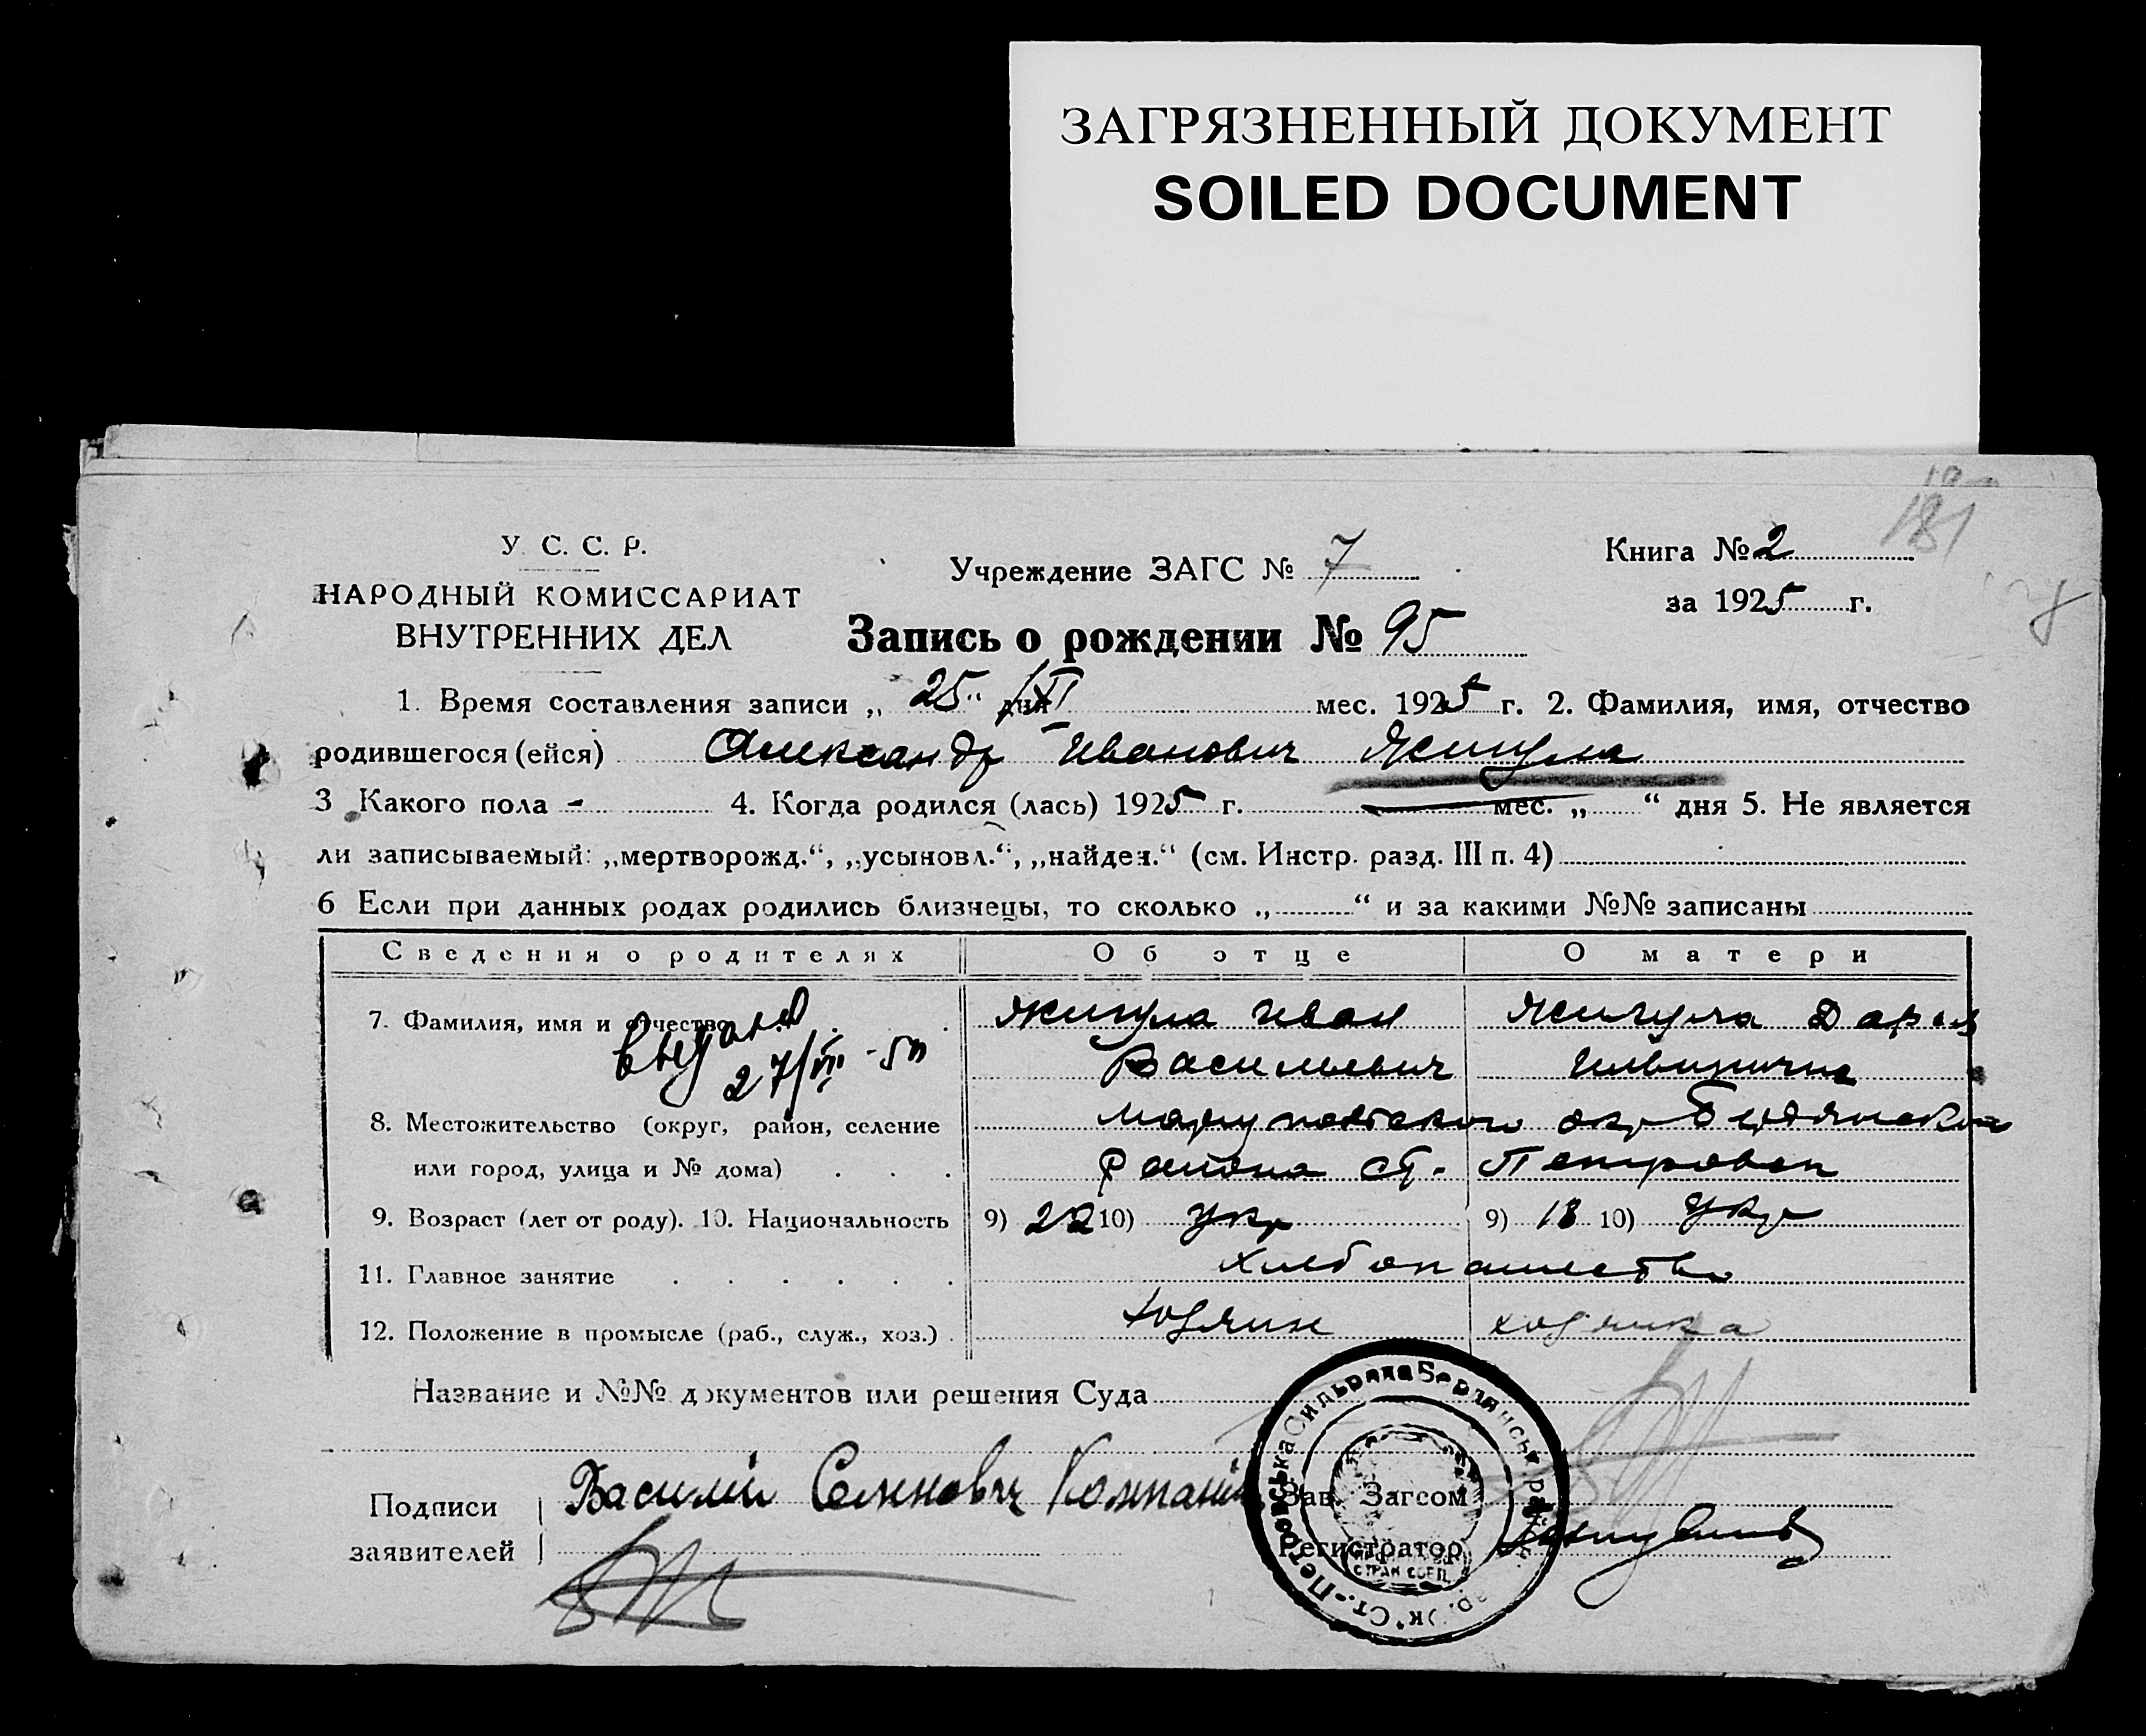 ЗАГРЯЗНЕННЫЙ ДОКУМЕНТ
SOILED DOCUMENT
181
У. С. С. Р.
НАРОДНЫЙ КОМИССАРИАТ
ВНУТРЕННИХ ДЕЛ
Учреждение ЗАГС № 7
Книга № 2
за 1925 г.
Запись о рождении № 95
1. Время составления записи „ 25 “ дня мес. 1925 г. 2. Фамилия, имя, отчество
родившегося (ейся) Александр Иванович
3 Какого пола - 4. Когда родился (лась) 1925 г. мес. „ “ дня 5. Не является
ли записываемый: „мертворожд.“, „усыновл.“, „найден.“ (см. Инстр. разд. III п. 4)
6 Если при данных родах родились близнецы, то сколько „ “ и за какими №№ записаны
Сведения о родителях Об отце О матери
7. Фамилия, имя и отчество Иван Дария
Васильевич
выдано 27/VII-50
8. Местожительство (округ, район, селение Мариупольского окр Бердянского
или город, улица и № дома) Района ст. Петровск
9. Возраст (лет от роду). 10. Национальность 9) 22 10) укр 9) 18 10) укр
11. Главное занятие хлебопашество
12. Положение в промысле (раб., служ., хоз.) хозяин хозяйка
Название и №№ документов или решения Суда
Подписи заявителей Василий Семенович
Зав. Загсом
Регистратор
Ст.-Петровська Сильрада Бердянськ